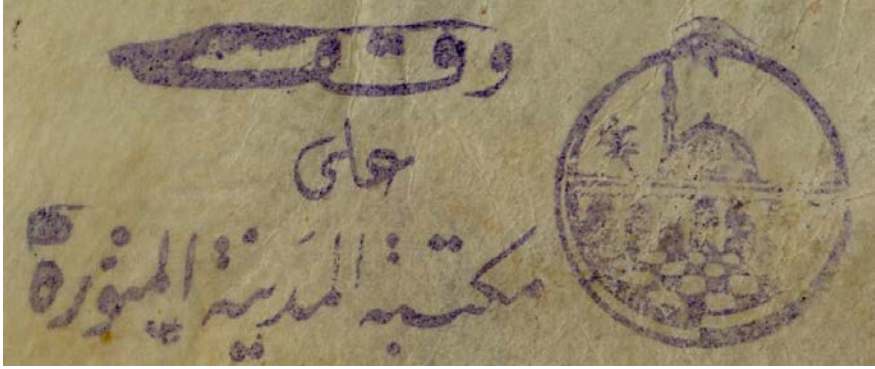 وقف
على
مكتبة المدينة المنورة